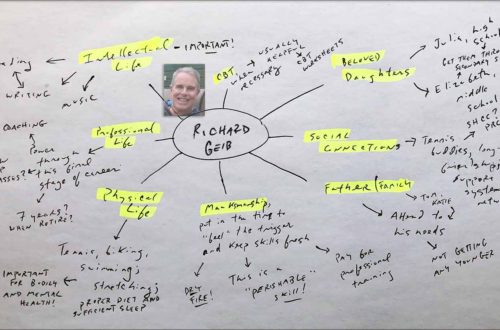 Intellectual
Life
- IMPORTANT!
WRITING
MUSIC
COACHING
Professional
Life
Power
through
this final
stage of career
7 years?
WHEN RETIRE?
Physical
Life
Tennis, biking,
swimming;
stretching;
PROPER DIET AND
SUFFICIENT SLEEP
IMPORTANT
FOR BODILY
AND MENTAL
HEALTH!
CBT,
when
necessary
USUALLY
HELPFUL
CBT
WORKSHEETS
RICHARD
GEIB
Marksmanship,
put in the time to
"feel" the trigger
and keep skills fresh
DRY
FIRE!
This is a
"PERISHABLE"
skill!
PAY FOR
professional
training
BELOVED
Daughters
Julia, high
school
GET THEM THRO
SECONDARY S
Elizabeth
middle
school
SOCIAL
CONNECTIONS
Tennis
buddies, long-
friendships
support
system
netw
Father/Family
Tom
KATIE
Attend to
his needs
NOT GETTING
ANY YOUNGER